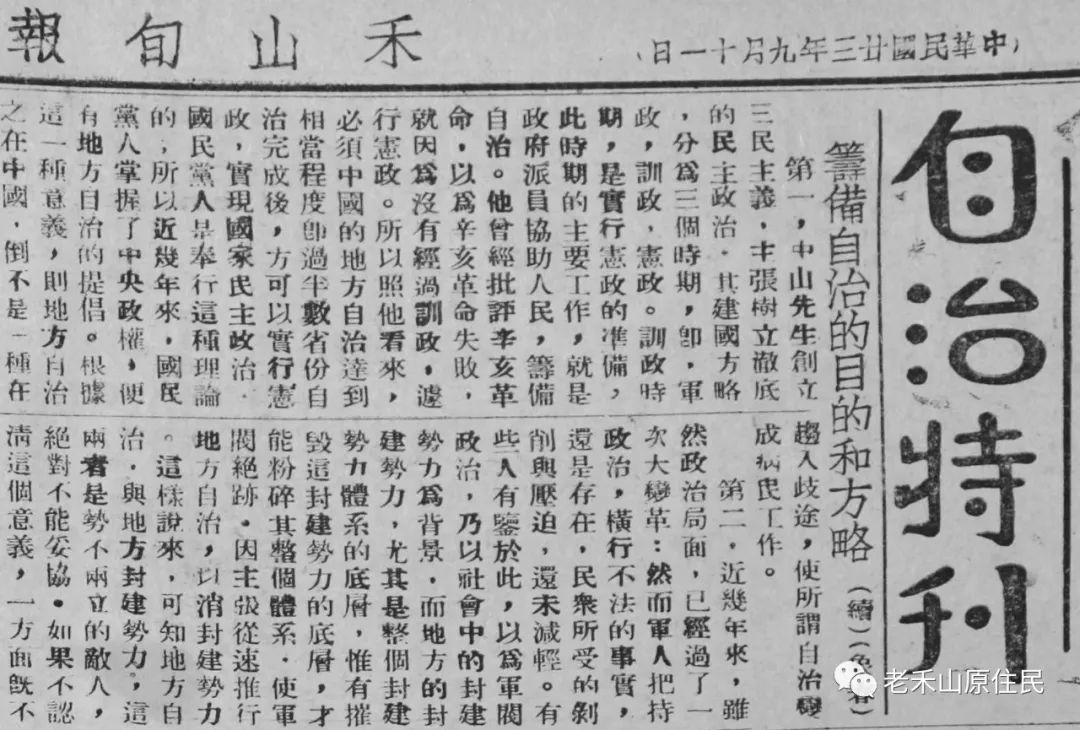 （中華民國廿三年九月十一日）
禾山旬報
自治特刊
籌備自治的目的和方略（續）
第一，中山先生創立
三民主義，主張樹立澈底
的民主政治．其建國方略
，分爲三個時期，卽，軍
政，訓政，憲政。訓政時
期，是實行憲政的準備，
此時期的主要工作，就是
政府派員協助人民，籌備
自治。他曾經批評辛亥革
命，以爲辛亥革命失敗，
就因爲沒有經過訓政，遽
行憲政。所以照他看來，
必須中國的地方自治達到
相當程度卽過半數省份自
治完成後，方可以實行憲
政，實現國家民主政治．
國民黨人是奉行這種理論
的；所以近幾年來，國民
黨人掌握了中央政權，便
有地方自治的提倡。根據
這一種意義，則地方自治
之在中國，倒不是一種在
趨入歧途，使所謂自治變
成病民工作。
第二，近幾年來，雖
然政治局面，已經過了一
次大變革：然而軍人把持
政治，橫行不法的事實，
還是存在，民衆所受的剝
削與壓迫，還未減輕。有
些人有鑒於此，以爲軍閥
政治，乃以社會中的封建
勢力爲背景．而地方的封
建勢力，尤其是整個封建
勢力體系的底層，惟有摧
毀這封建勢力的底層，才
能粉碎其整個體系．使軍
閥絕跡．因主張從速推行
地方自治，以消封建勢力
。這樣說來，可知地方自
治，與地方封建勢力，這
兩者是勢不兩立的敵人，
絕對不能妥協．如果不認
淸這個意義，一方面旣不
老禾山原住民